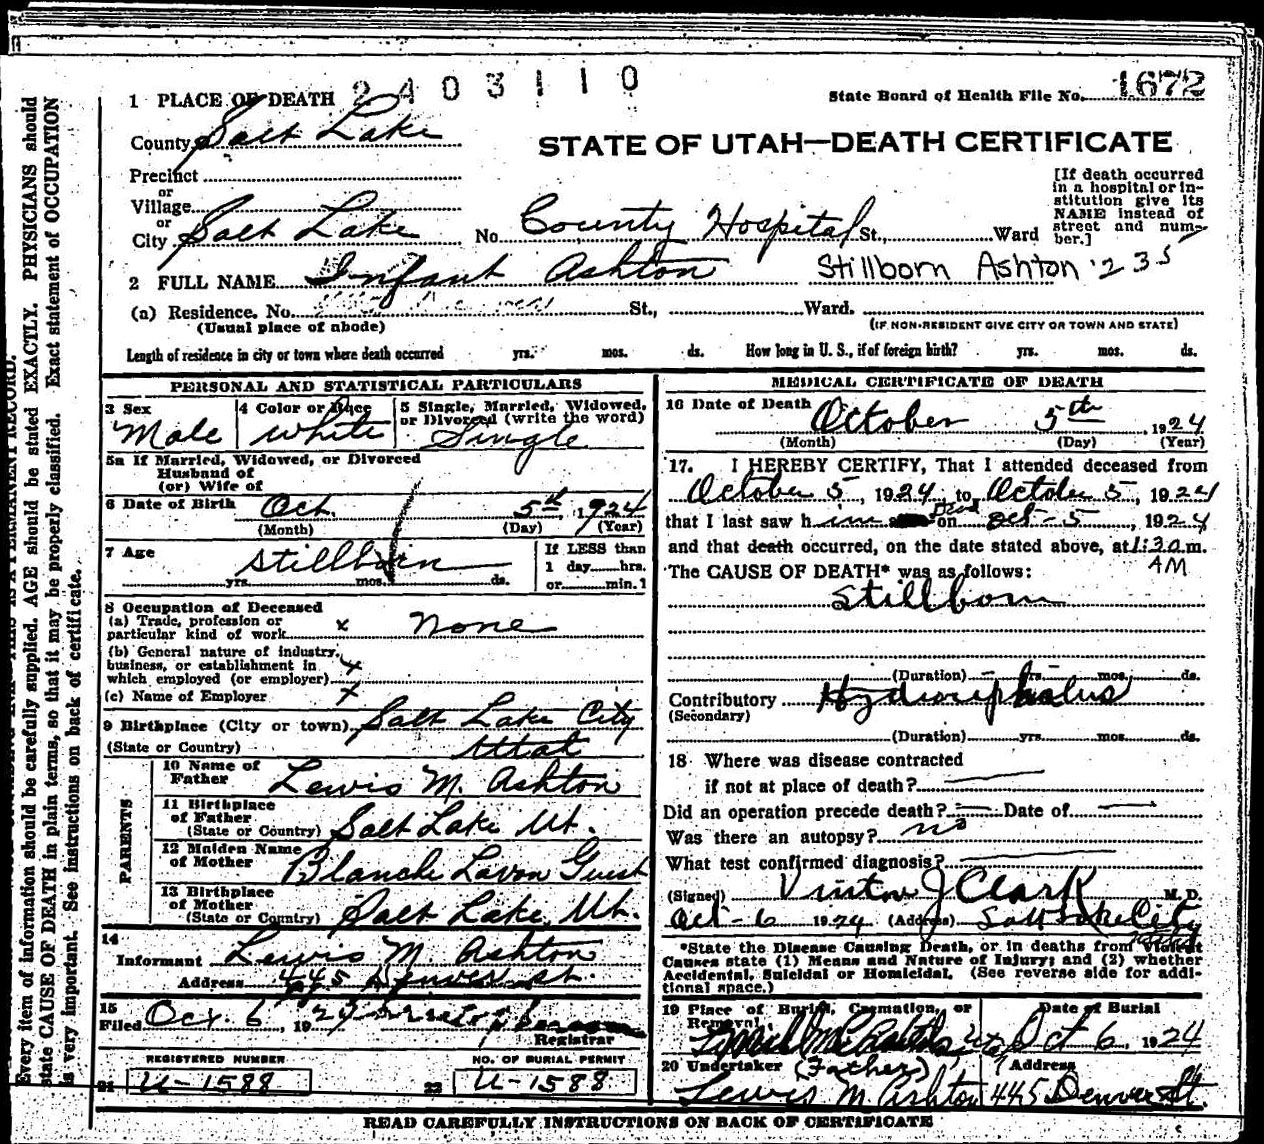 2403110
1672
State Board of Health File No.
1 PLACE OF DEATH
County Salt Lake
STATE OF UTAH—DEATH CERTIFICATE
Precinct
or
Village
or
City Salt Lake No. County Hospital St., Ward
[If death occurred
in a hospital or in-
stitution give its
NAME instead of
street and num-
ber.]
2 FULL NAME Infant Ashton Stillborn Ashton 235
(a) Residence. No. St., Ward.
(Usual place of abode) (IF NON-RESIDENT GIVE CITY OR TOWN AND STATE)
Length of residence in city or town where death occurred yrs. mos. ds. How long in U. S., if of foreign birth? yrs. mos. ds.
PERSONAL AND STATISTICAL PARTICULARS
3 Sex 4 Color or Race 5 Single, Married, Widowed,
or Divorced (write the word)
Male White Single
5a If Married, Widowed, or Divorced
Husband of
(or) Wife of
6 Date of Birth Oct. 5th, 1924
(Month) (Day) (Year)
7 Age Stillborn If LESS than
1 day hrs.
yrs. mos. ds. or min. 1
8 Occupation of Deceased
(a) Trade, profession or
particular kind of work x None
(b) General nature of industry,
business, or establishment in
which employed (or employer) x
(c) Name of Employer x
9 Birthplace (City or town) Salt Lake City
(State or Country) Utah
PARENTS
10 Name of
Father Lewis M. Ashton
11 Birthplace
of Father
(State or Country) Salt Lake Ut.
12 Maiden Name
of Mother Blanche Lavon Guest
13 Birthplace
of Mother
(State or Country) Salt Lake, Ut.
14
Informant Lewis M Ashton
Address 445 Denver St.
15
Filed Oct. 6, 19 24
Registrar
REGISTERED NUMBER NO. OF BURIAL PERMIT
21 U-1588 22 U-1588
MEDICAL CERTIFICATE OF DEATH
16 Date of Death October 5th, 1924
(Month) (Day) (Year)
17. I HEREBY CERTIFY, That I attended deceased from
October 5, 1924 to October 5, 1924
that I last saw him Dead on Oct-5, 1924
and that death occurred, on the date stated above, at 1:30 m.
AM
The CAUSE OF DEATH* was as follows:
Stillborn
(Duration) yrs. mos. ds.
Contributory Hydrocephalus
(Secondary)
(Duration) yrs. mos. ds.
18 Where was disease contracted
if not at place of death?
Did an operation precede death? Date of
Was there an autopsy? no
What test confirmed diagnosis?
(Signed) Vinton J Clark M. D.
Oct-6 1924 (Address) Salt Lake City
*State the Disease Causing Death, or in deaths from Violent
Causes state (1) Means and Nature of Injury; and (2) whether
Accidental, Suicidal or Homicidal. (See reverse side for addi-
tional space.)
19 Place of Burial, Cremation, or Date of Burial
Removal
Oct 6, 1924
20 Undertaker (Father) Address
Lewis M Ashton 445 Denver St.
READ CAREFULLY INSTRUCTIONS ON BACK OF CERTIFICATE
Every item of information should be carefully supplied. AGE should be stated EXACTLY. PHYSICIANS should
state CAUSE OF DEATH in plain terms, so that it may be properly classified. Exact statement of OCCUPATION
is very important. See instructions on back of certificate.